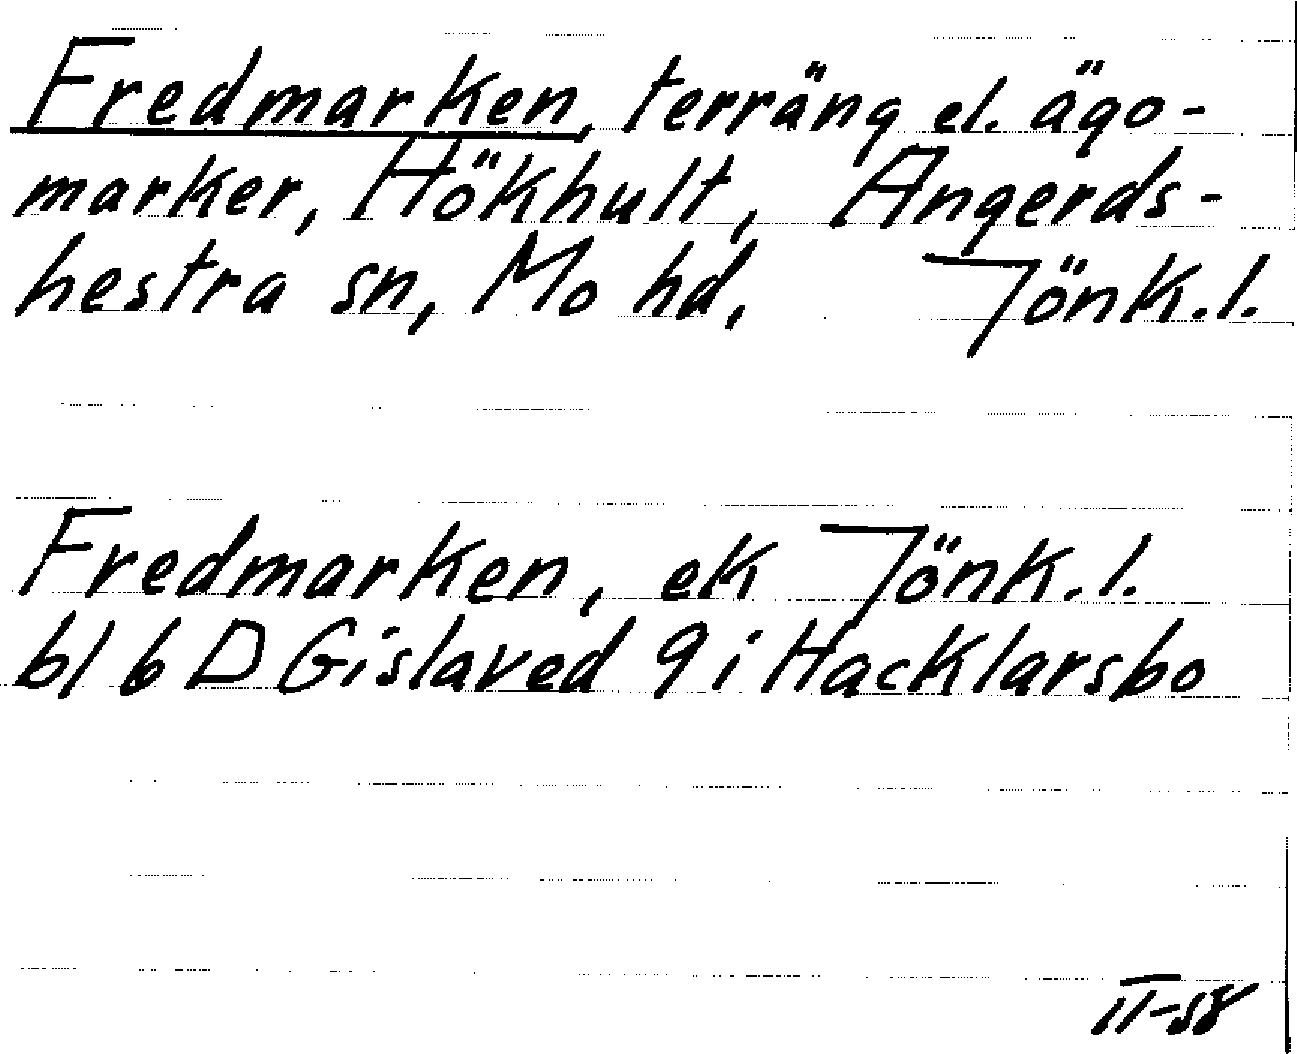 Fredmarken, terräng el. ägo-
marker, Hökhult, Ångerds-
hestra sn, Mo hd, Jönk.l.
Fredmarken, ek Jönk.l.
bl 6 D Gislaved 9 i Hacklarsbo
II-58